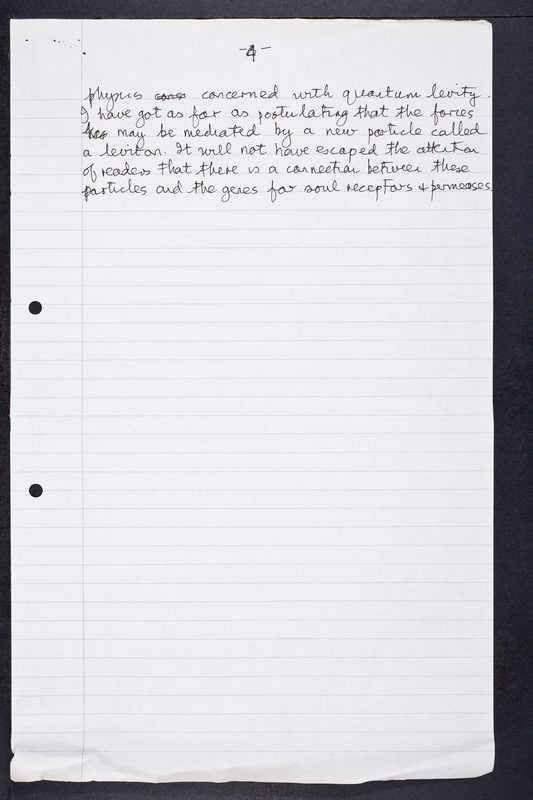 -4-
physics concerned with quantum levity.
I have got as far as postulating that the forces
may be mediated by a new particle called
a leviton. It will not have escaped the attention
of readers that there is a connection between these
particles and the genes for soul receptors & permeases.